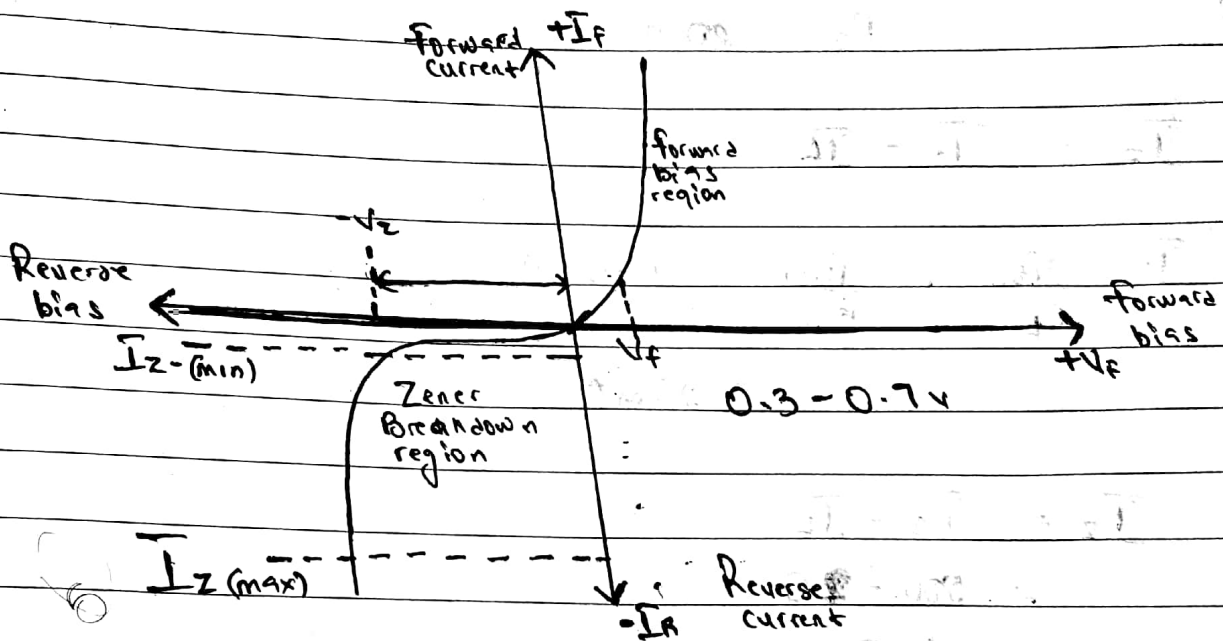 +IF
Forward
current
forward
bias
region
-Vz
Reverse
bias
Forward
bias
+VF
Iz-(min)
Vf
0.3-0.7v
Zener
Breakdown
region
Iz (max)
Reverse
current
-IR